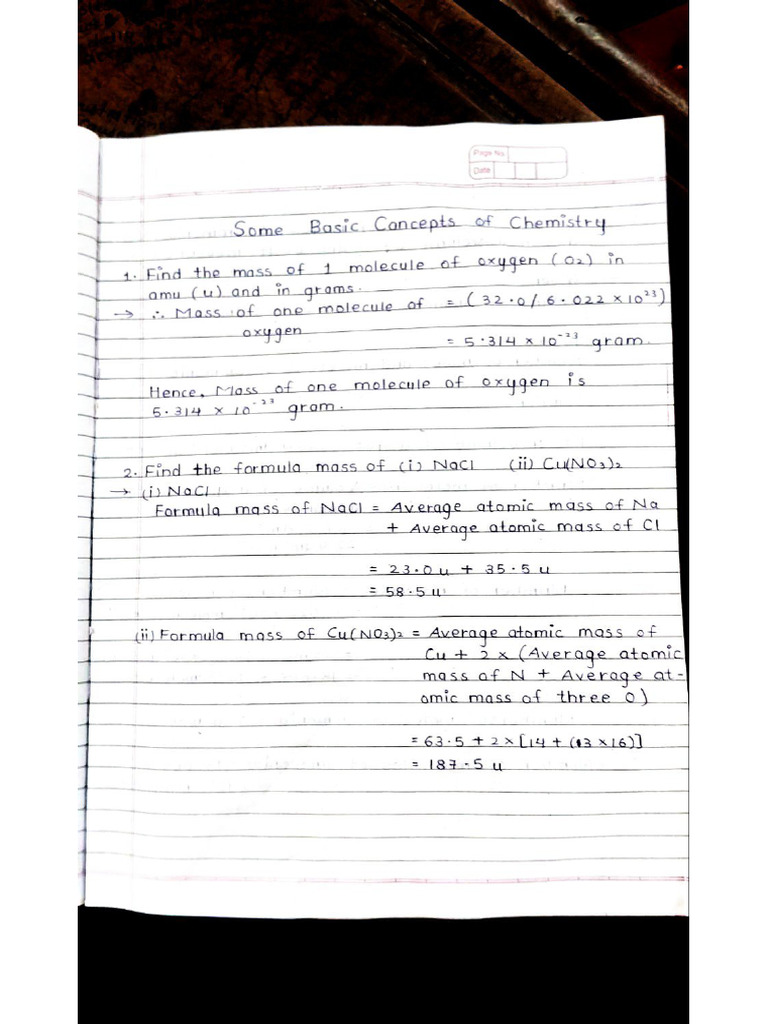 Page No.
Date
Some Basic Concepts of Chemistry
1. Find the mass of 1 molecule of oxygen (O2) in
amu (u) and in grams.
→ ∴ Mass of one molecule of = (32.0/6.022 × 10²³)
oxygen
= 5.314 × 10⁻²³ gram.
Hence, Mass of one molecule of oxygen is
5.314 × 10⁻²³ gram.
2. Find the formula mass of (i) NaCl (ii) Cu(NO3)2
→ (i) NaCl
Formula mass of NaCl = Average atomic mass of Na
+ Average atomic mass of Cl
= 23.0 u + 35.5 u
= 58.5 u
(ii) Formula mass of Cu(NO3)2 = Average atomic mass of
Cu + 2 × (Average atomic
mass of N + Average at-
omic mass of three O)
= 63.5 + 2 × [14 + (3 × 16)]
= 187.5 u